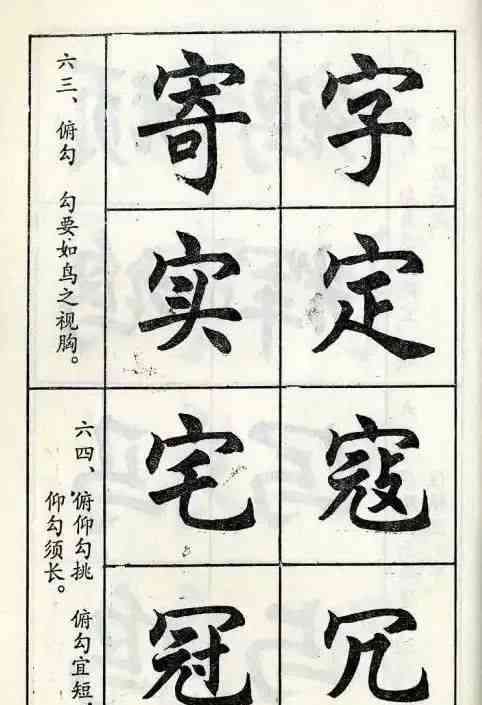 字
定
寇
冗
寄
实
宅
冠
六三、俯勾 勾要如鸟之视胸。
六四、俯仰勾挑 俯勾宜短，
仰勾须长。